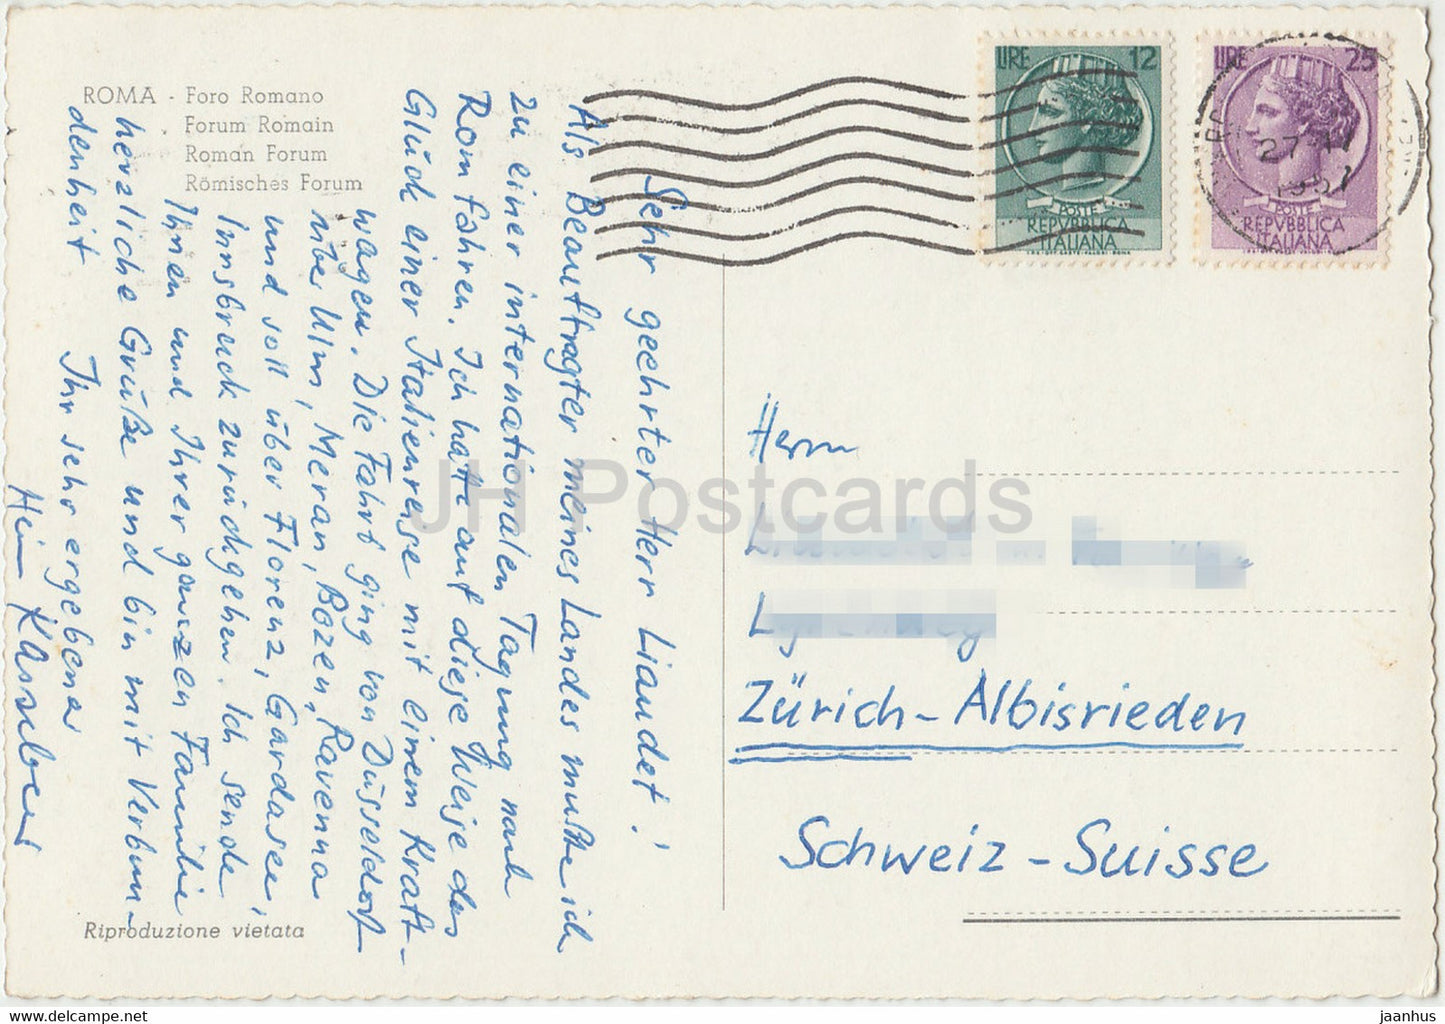 ROMA - Foro Romano
Forum Romain
Roman Forum
Römisches Forum
Sehr geehrter Herr Liaudet!
Als Beauftragter meines Landes mußte ich
zu einer internationalen Tagung nach
Rom fahren. Ich hatte auf diese Weise das
Glück einer Italienreise mit einem Kraft-
wagen. Die Fahrt ging von Düsseldorf
über Ulm, Meran, Bozen, Ravenna
und soll über Florenz, Gardasee,
Innsbruck zurückgehen. Ich sende
Ihnen und Ihrer ganzen Familie
herzliche Grüße und bin mit Verbun-
denheit Ihr sehr ergebener
Riproduzione vietata
LIRE 12
POSTE
REPVBBLICA
ITALIANA
LIRE 25
POSTE
REPVBBLICA
ITALIANA
Herrn
Zürich-Albisrieden
Schweiz-Suisse
JH Postcards
https://www.jh-postcards.com
jaanhus